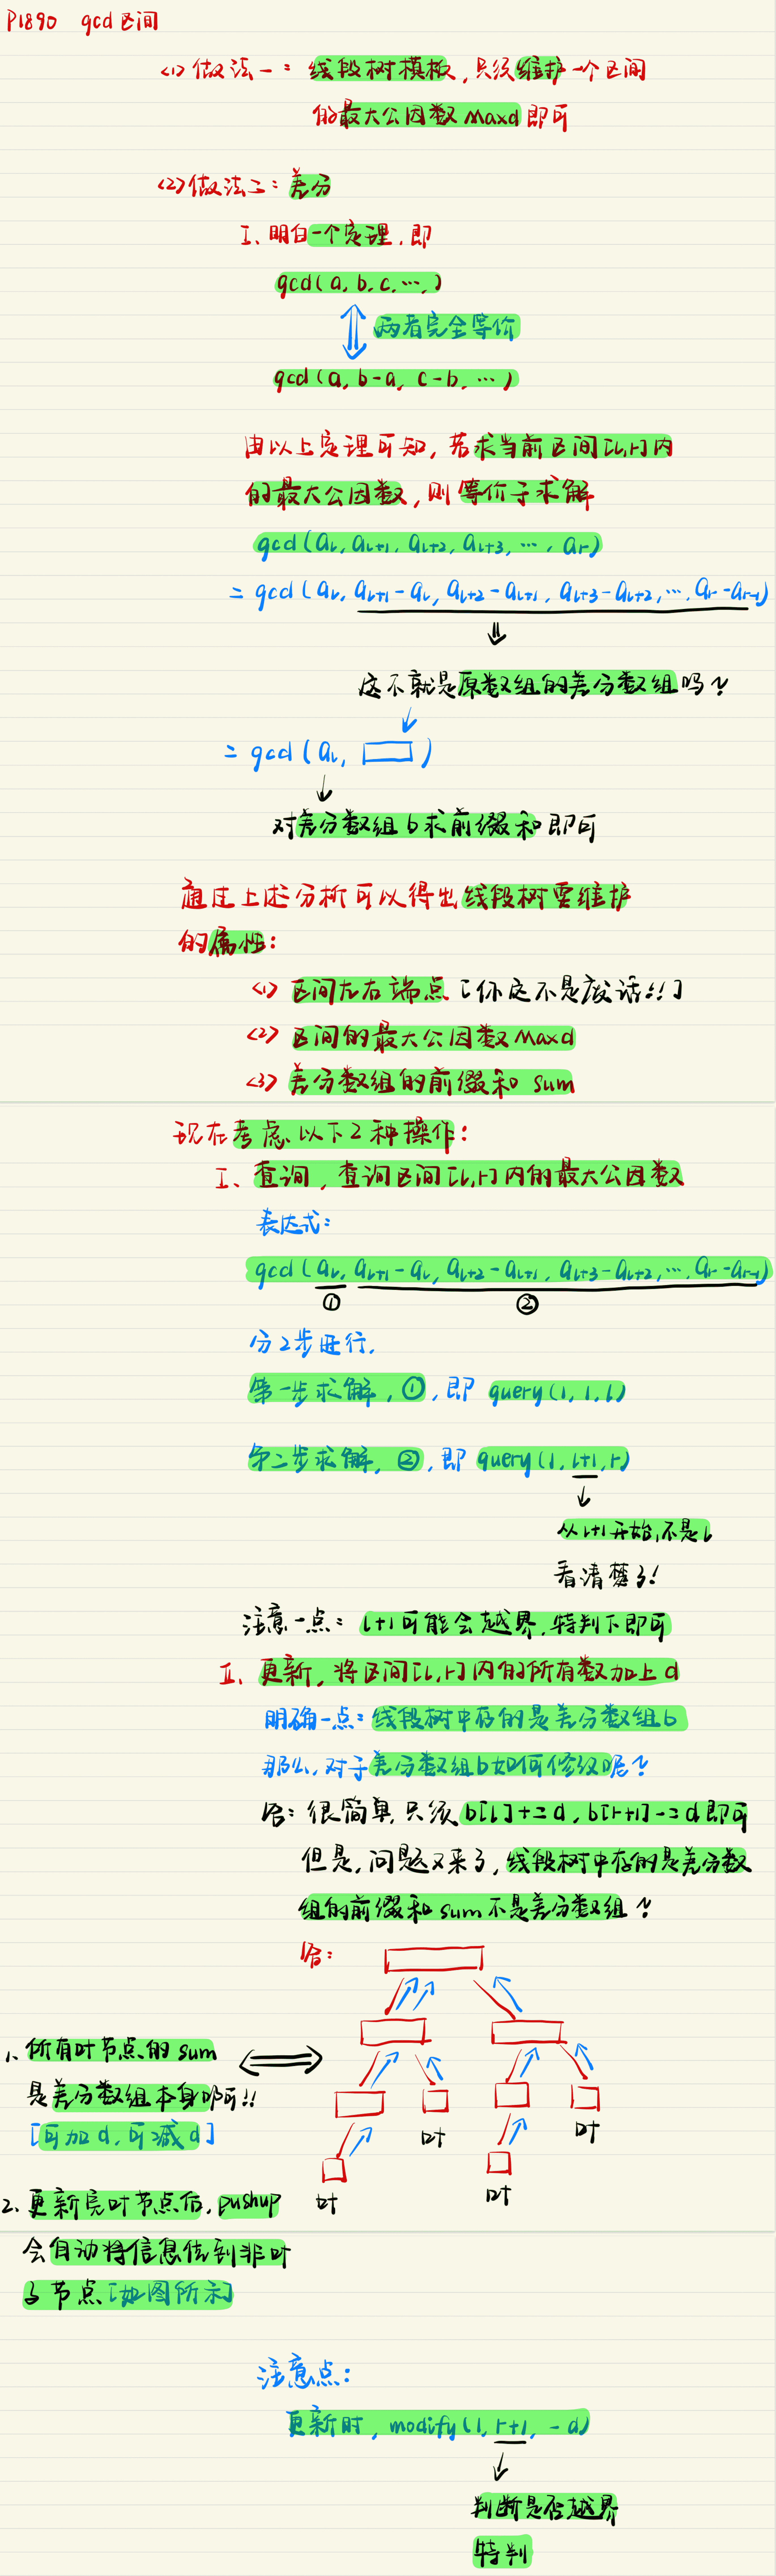 P1890 gcd区间
<1>做法一：线段树模板，只须维护一个区间
的最大公因数maxd即可
<2>做法二：差分
I、明白一个定理，即
gcd(a,b,c,…,)
两者完全等价
gcd(a,b-a,c-b,…)
由以上定理可知，若求当前区间[l,r]内
的最大公因数，则等价于求解
gcd(al,al+1,al+2,al+3,…,ar)
=gcd(al,al+1-al,al+2-al+1,al+3-al+2,…,ar-ar-1)
这不就是原数组的差分数组吗？
=gcd(al, )
对差分数组b求前缀和即可
通过上述分析可以得出线段树要维护
的属性：
<1>区间左右端点[你这不是废话!!]
<2>区间的最大公因数maxd
<3>差分数组的前缀和sum
现在考虑以下2种操作：
I、查询，查询区间[l,r]内的最大公因数
表达式：
gcd(al,al+1-al,al+2-al+1,al+3-al+2,…,ar-ar-1)
① ②
分2步进行，
第一步求解，①，即query(1,1,l)
第二步求解，②，即query(1,l+1,r)
从l+1开始，不是l
看清楚了！
注意一点：l+1可能会越界，特判下即可
II、更新，将区间[l,r]内的所有数加上d
明确一点：线段树中存的是差分数组b
那么，对于差分数组b如何修改呢？
答：很简单，只须b[l]+=d,b[r+1]-=d即可
但是，问题又来了，线段树中存的是差分数
组的前缀和sum不是差分数组？
答：
1、所有叶节点的sum
是差分数组本身即可!!
[可加d,可减d]
叶
叶
叶
叶
2、更新完叶节点后，pushup
会自动将信息传到非叶
子节点[如图所示]
注意点：
更新时，modify(1,r+1,-d)
判断是否越界
特判